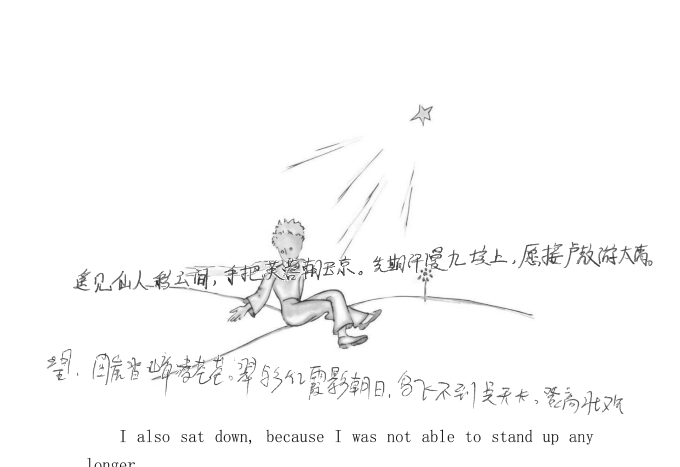 遥见仙人彩云间，手把芙蓉朝玉京。先期汗漫九垓上，愿接卢敖游太清。
翠影红霞影朝日，鸟飞不到吴天长。登高壮观
I also sat down, because I was not able to stand up any
longer